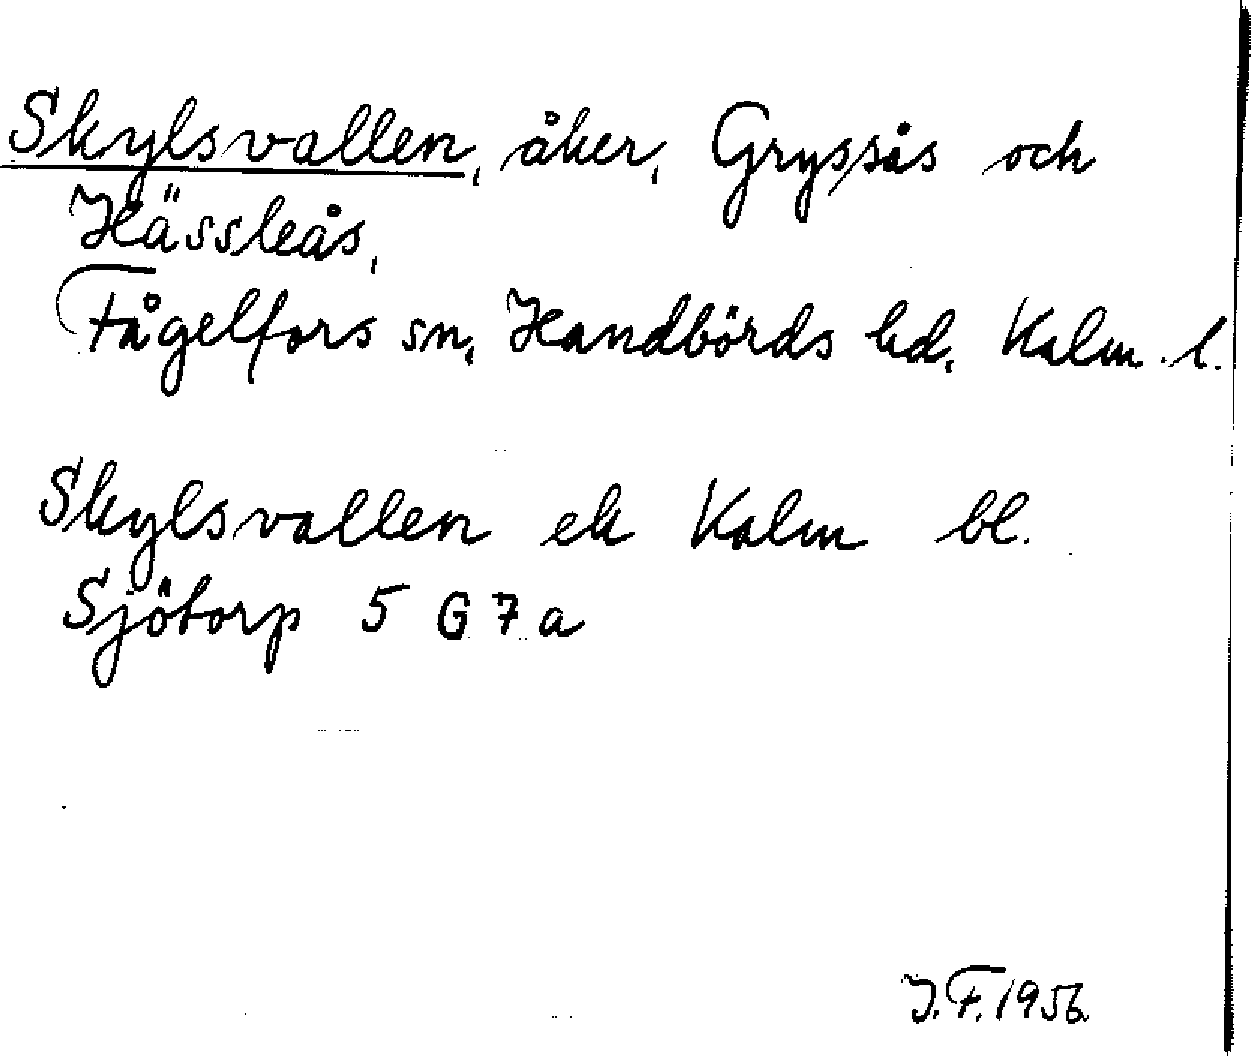 Skylsvallen, åker, Gryssås och
Hässleås,
Fågelfors sn, Handbörds hd, Kalm. l.
Skylsvallen ek Kalm bl.
Sjötorp 5 G 7 a
J.F. 1956.